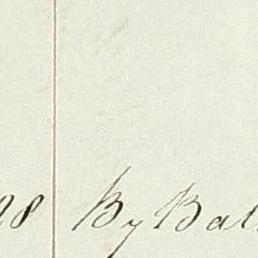 28 By Bal